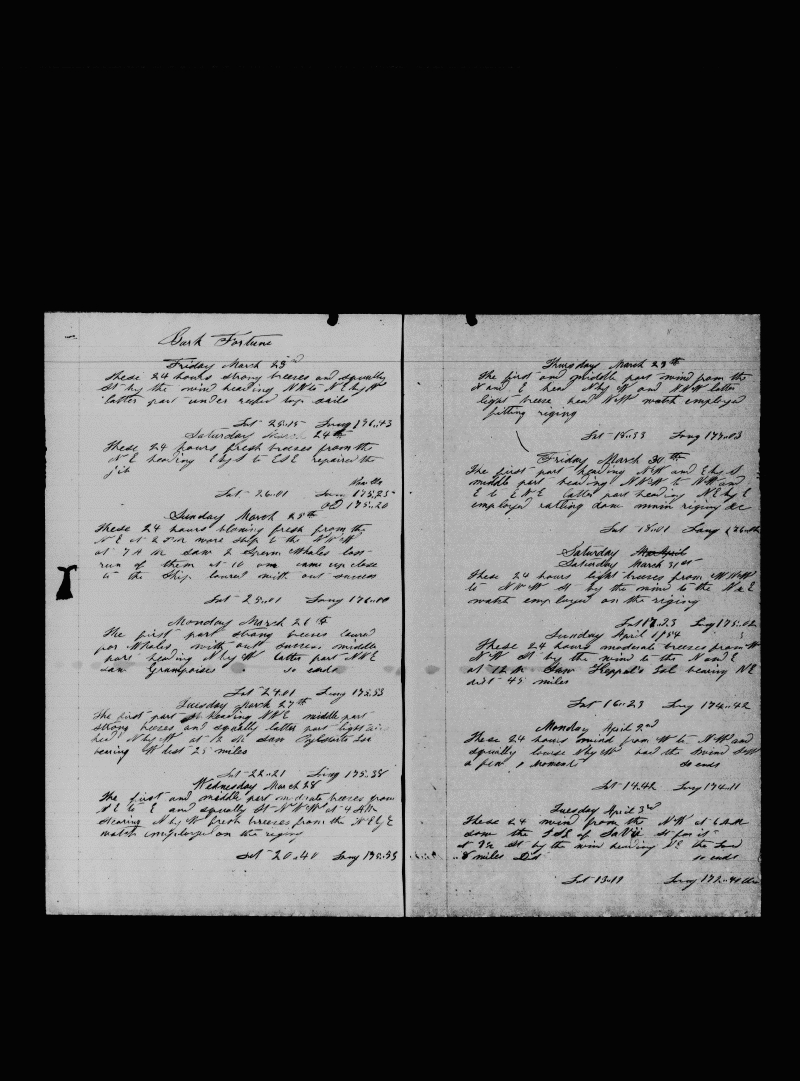 Bark Fortune
Friday March 23rd
These 24 hours strong breezes and squally
St by the wind heading NN to N E by N
latter part under reefed top sails
Lat 28..15 Long 176..43
Saturday March 24th
These 24 hours fresh breezes from the
N E heading E by S to ESE repaired the
jib
Lat 26.01 Long 175,25
175..20
Sunday March 25th
These 24 hours blowing fresh from the
N E at 2 P M wore ship to the N N W
at 7 A M saw 2 Sperm Whales last
run of them at 10 one came up close
to the Ship lowred with out success
Lat 25..01 Long 176..00
Monday March 26th
The first part strong breezes lowred
for Whales with out success middle
part heading N by W latter part N N E
saw Grampuses so ends
Lat 24.01 Long 175..53
Tuesday March 27th
The first part St heading N N E middle part
strong breezes and squally latter part light airs
head N by W at 12 M saw Isl
bearing W dist 25 miles
Lat 22..21 Long 175..38
Wednesday March 28
The first and middle part moderate breezes from
N E to E and squally St N N W at 4 A M
Stearing N by W fresh breezes from the N E by E
watch employed on the riging
Lat 20..40 Long 175..55
Thursday March 29th
The first and middle part wind from the
N and E head N by W and N N W latter
light breeze head N W watch employed
fitting riging
Lat 18..53 Long 175.03
Friday March 30th
The first part heading N W and E by S
middle part heading N N W to N W and
E to E N E latter part heading N E by E
employed ratling down main riging &c
Lat 18..01 Long 176..
Saturday April
Saturday March 31st
These 24 hours light breezes from W N W
to N N W St by the wind to the N & E
watch employed on the riging
Lat 17..23 Long 175..02
Sunday April 1/54
These 24 hours moderate breezes from W
N W St by the wind to the N and E
at 12 M Saw Keppel's Isl bearing N E
dist 45 miles
Lat 16..23 Long 174..42
Monday April 2nd
These 24 hours wind from W to N W and
squally course N by W had the wind S W
a few moments So ends
Lat 14.42 Long 174..11
Tuesday April 3rd
These 24 wind from the N W at 6 A M
saw the Isl of St for it
at 12 St by the wind heading N E the Land
8 miles Dst so ends
Lat 13..19 Long 172..40